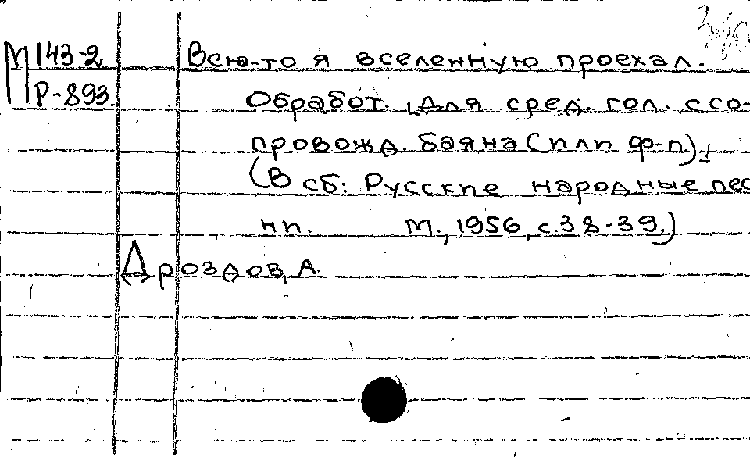 М143-2
Р-893
Всю-то я вселенную проехал.
Обработ. для сред. гол. с со-
провожд. баяна (или ф-п).
(В сб: Русские народные пес
ни. М., 1956, с.38-39.)
Дроздов, А.